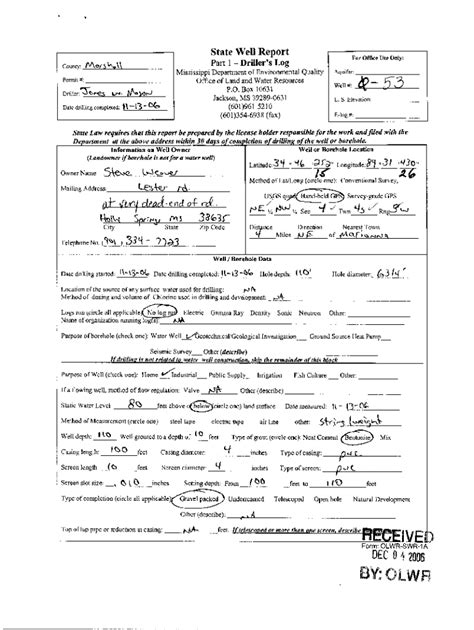 State Well Report
Part 1 – Driller's Log
Mississippi Department of Environmental Quality
Office of Land and Water Resources
P.O. Box 10631
Jackson, MS 39289-0631
(601)961 5210
(601)354-6938 (fax)
County: Marshall
Permit #:
Driller: Jones W. Mason
Date drilling completed: 11-13-06
For Office Use Only:
Aquifer:
Well #: Q-53
L. S. Elevation
E-log #:
State Law requires that this report be prepared by the license holder responsible for the work and filed with the
Department at the above address within 30 days of completion of drilling of the well or borehole.
Information on Well Owner
(Landowner if borehole is not for a water well)
Owner Name Steve Weaver
Mailing Address Lester rd.
at very dead end of rd.
Holly Springs MS 38635
City State Zip Code
Telephone No. 334-7723
Well or Borehole Location
Latitude 34 46 Longitude 89 31
Method of Lat/Long (circle one): Conventional Survey,
USGS quad, Hand-held GPS, Survey-grade GPS
NE ¼ NW ¼ Sec 4 Twn 4S Rng
Distance Direction Nearest Town
4 Miles NE of Marianna
Well / Borehole Data
Date drilling started: 11-13-06 Date drilling completed: 11-13-06 Hole depth: 110' Hole diameter: 6 3/4"
Location of the source of any surface water used for drilling: NA
Method of dosing and volume of Chlorine used in drilling and development: NA
Logs run (circle all applicable): No log run Electric Gamma Ray Density Sonic Neutron Other:
Name of organization running log(s): NA
Purpose of borehole (check one): Water Well Geotechnical/Geological Investigation Ground Source Heat Pump
Seismic Survey Other (describe)
If drilling is not related to water well construction, skip the remainder of this block
Purpose of Well (check one): Home Industrial Public Supply Irrigation Fish Culture Other:
If a flowing well, method of flow regulation: Valve NA Other (describe)
Static Water Level 80 feet above or below (circle one) land surface Date measured: 11-13-06
Method of Measurement (circle one) steel tape electric tape air line other: String / weight
Well depth: 110 Well grouted to a depth of 10 feet Type of grout (circle one): Neat Cement Bentonite Mix
Casing length: 100 feet Casing diameter: 4 inches Type of casing: pvc
Screen length 10 feet Screen diameter: 4 inches Type of screen: pvc
Screen slot size .010 inches Setting depth: From 100 feet to 110 feet
Type of completion (circle all applicable): Gravel packed Underreamed Telescoped Open hole Natural Development
Other (describe): NA
Top of lap pipe or reduction in casing: NA feet. If telescoped or more than one screen, describe
RECEIVED
Form: OLWR-SWR-1A
DEC 04 2006
BY: OLWR